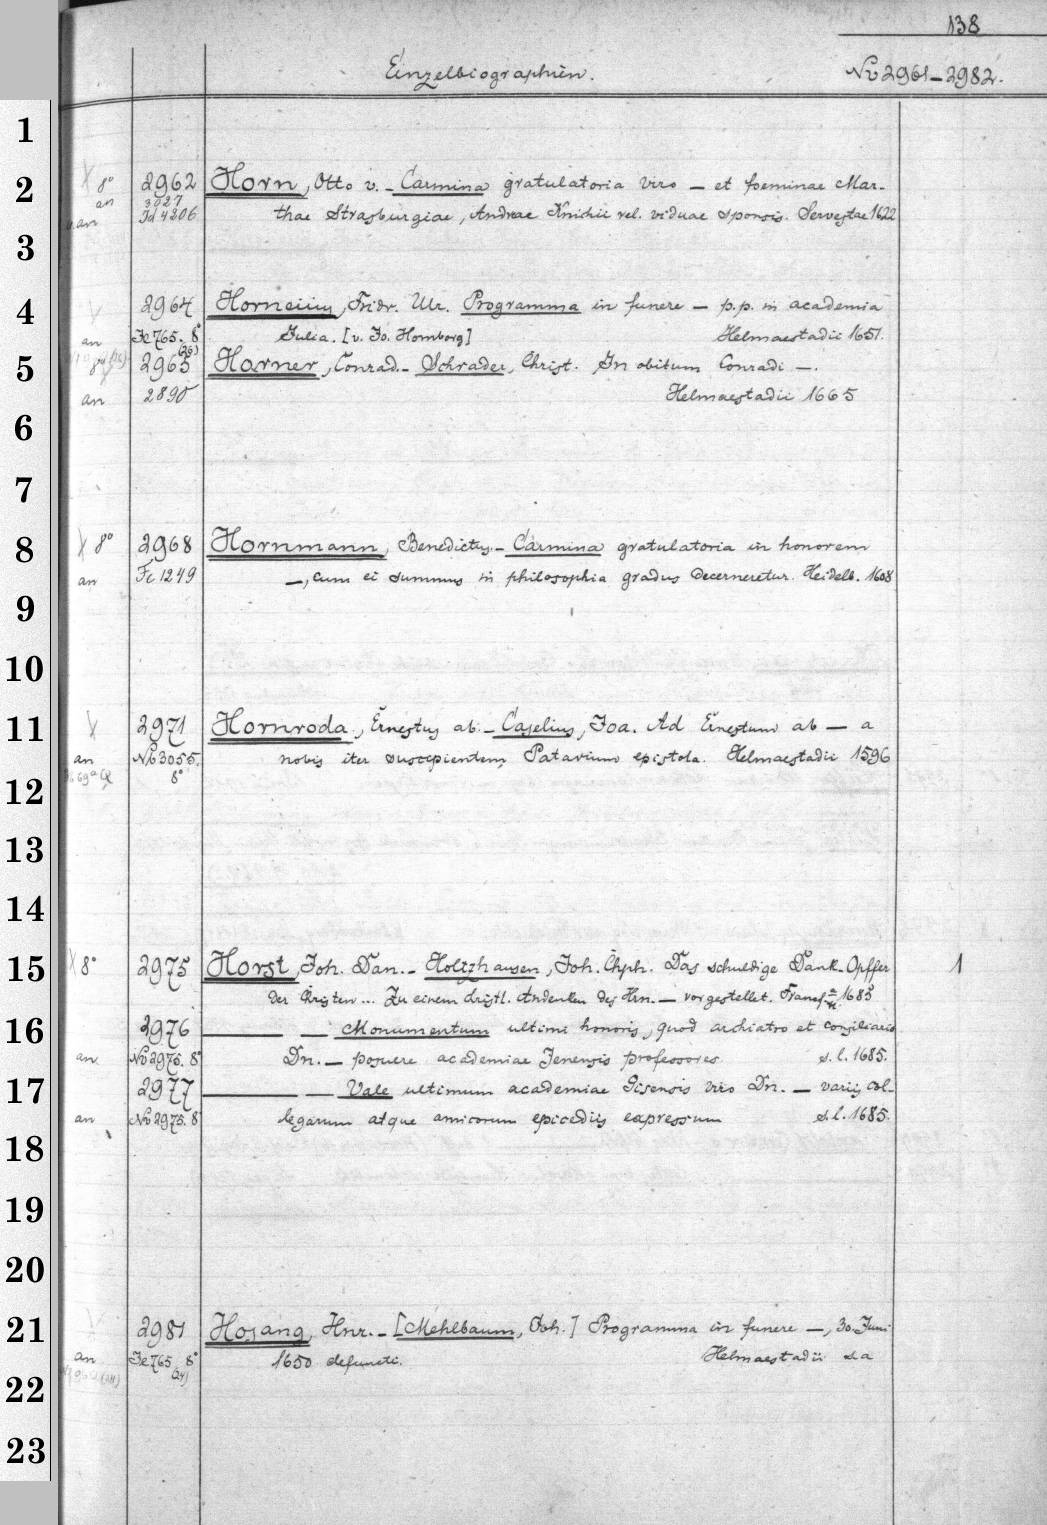 138
Einzelbiographien. No 2961-2982.
1
2 8° 2962 Horn, Otto v. - Carmina gratulatoria viro — et foeminae Mar-
an 3027
an Id 4206 thae Strasburgiae, Andreae Knichii rel. viduae sponsis. Servestae 1622
3
4 2964 Horneiius, Fridr. Ulr. Programma in funere — p.p. in academia
an Fe 765. 8° (26) Julia. [v. Jo. Homborg] Helmaestadii 1651.
5 8° 2965 Horner, Conrad. - Schrader, Christ. In obitum Conradi —.
an 2890 Helmaestadii 1665
6
7
8 8° 2968 Hornmann, Benedictus. - Carmina gratulatoria in honorem
an Fc 1249 —, cum ei summus in philosophia gradus decerneretur. Heidelb. 1608
9
10
11 2971 Hornroda, Ernestus ab. - Caselius, Joa. Ad Ernestum ab — a
an No 3055. 8° nobis iter suscipientem Patavium epistola. Helmaestadii 1596
12
13
14
15 8° 2975 Horst, Joh. Dan. - Holtzhausen, Joh. Chph. Das schuldige Dank-Opffer 1
der Kristen ... Zu einem christl. Andenken des Hrn. — vorgestellet. 1685
16 2976 — — Monumentum ultimi honoris, quod archiatro et consiliario
an No 2975. 8° Dn. — posuere academiae Jenensis professores s. l. 1685.
17 2977 — — Vale ultimum academiae Gisensis viro Dn. — variis col-
an No 2975. 8° legarum atque amicorum epicediis expressum s. l. 1685.
18
19
20
21 2981 Hosang, Hnr. - [Mehlbaum, Joh.] Programma in funere —, 30. Juni
an Fe 765 8° (24) 1650 defuncti. Helmaestadii s a
22
23